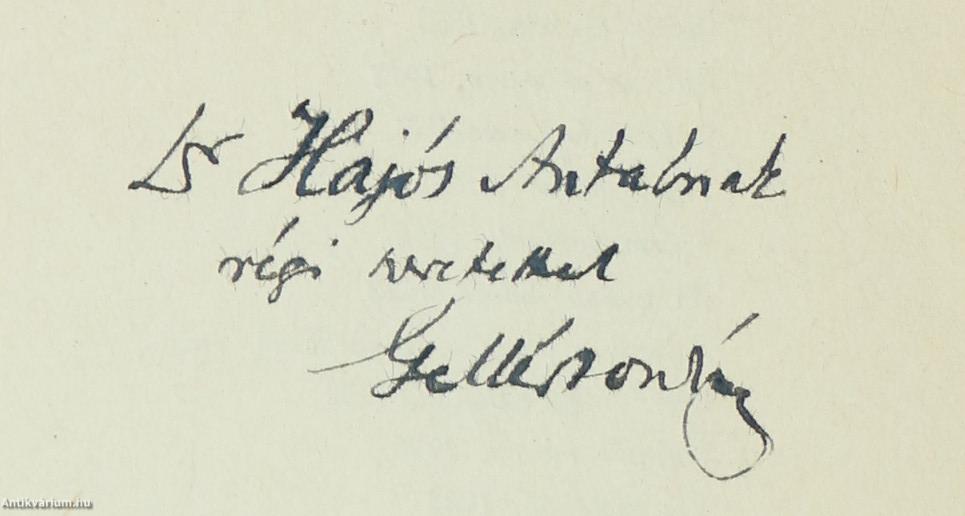 Dr Hajós Antalnak
régi szeretettel
Gellért Sándor
Antikvárium.hu